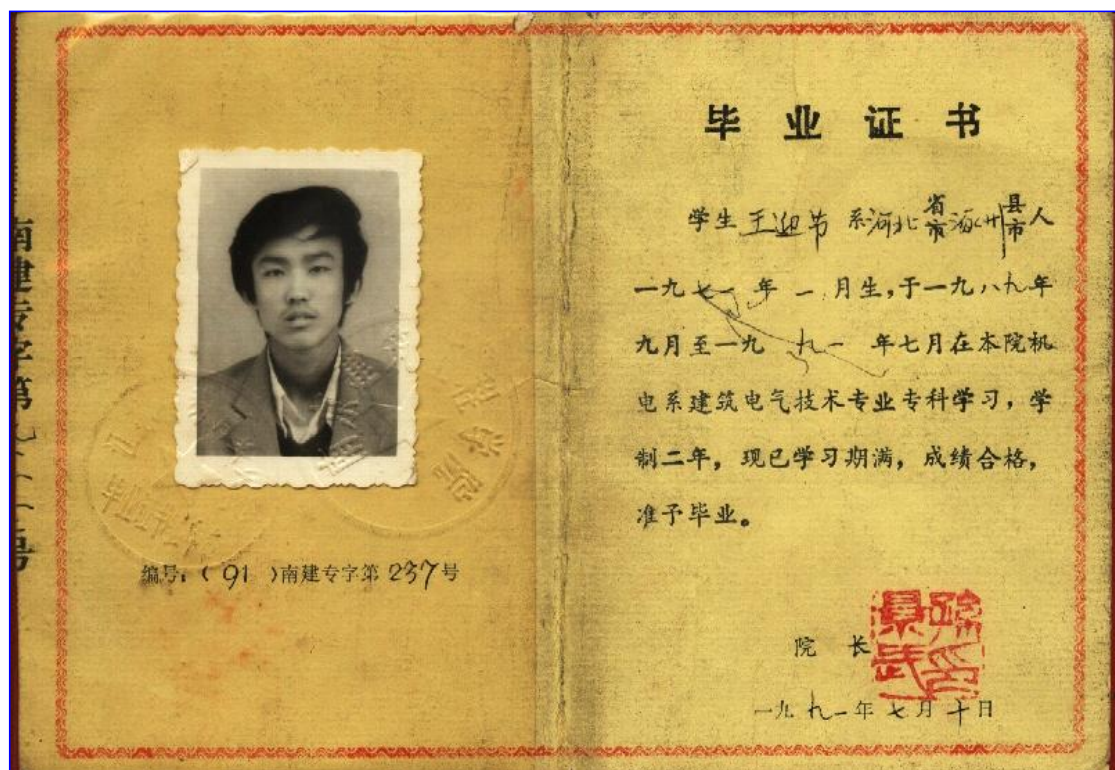 南建专字第
号
编号：（ 91 ）南建专字第 237 号
毕业证书
学生 王迎节 系河北省市涿州县市人
一九七一年 一 月生，于一九八九年
九月至一九 九一 年七月在本院机
电系建筑电气技术专业专科学习，学
制二年，现已学习期满，成绩合格，
准予毕业。
院 长
一九九一年七月十日